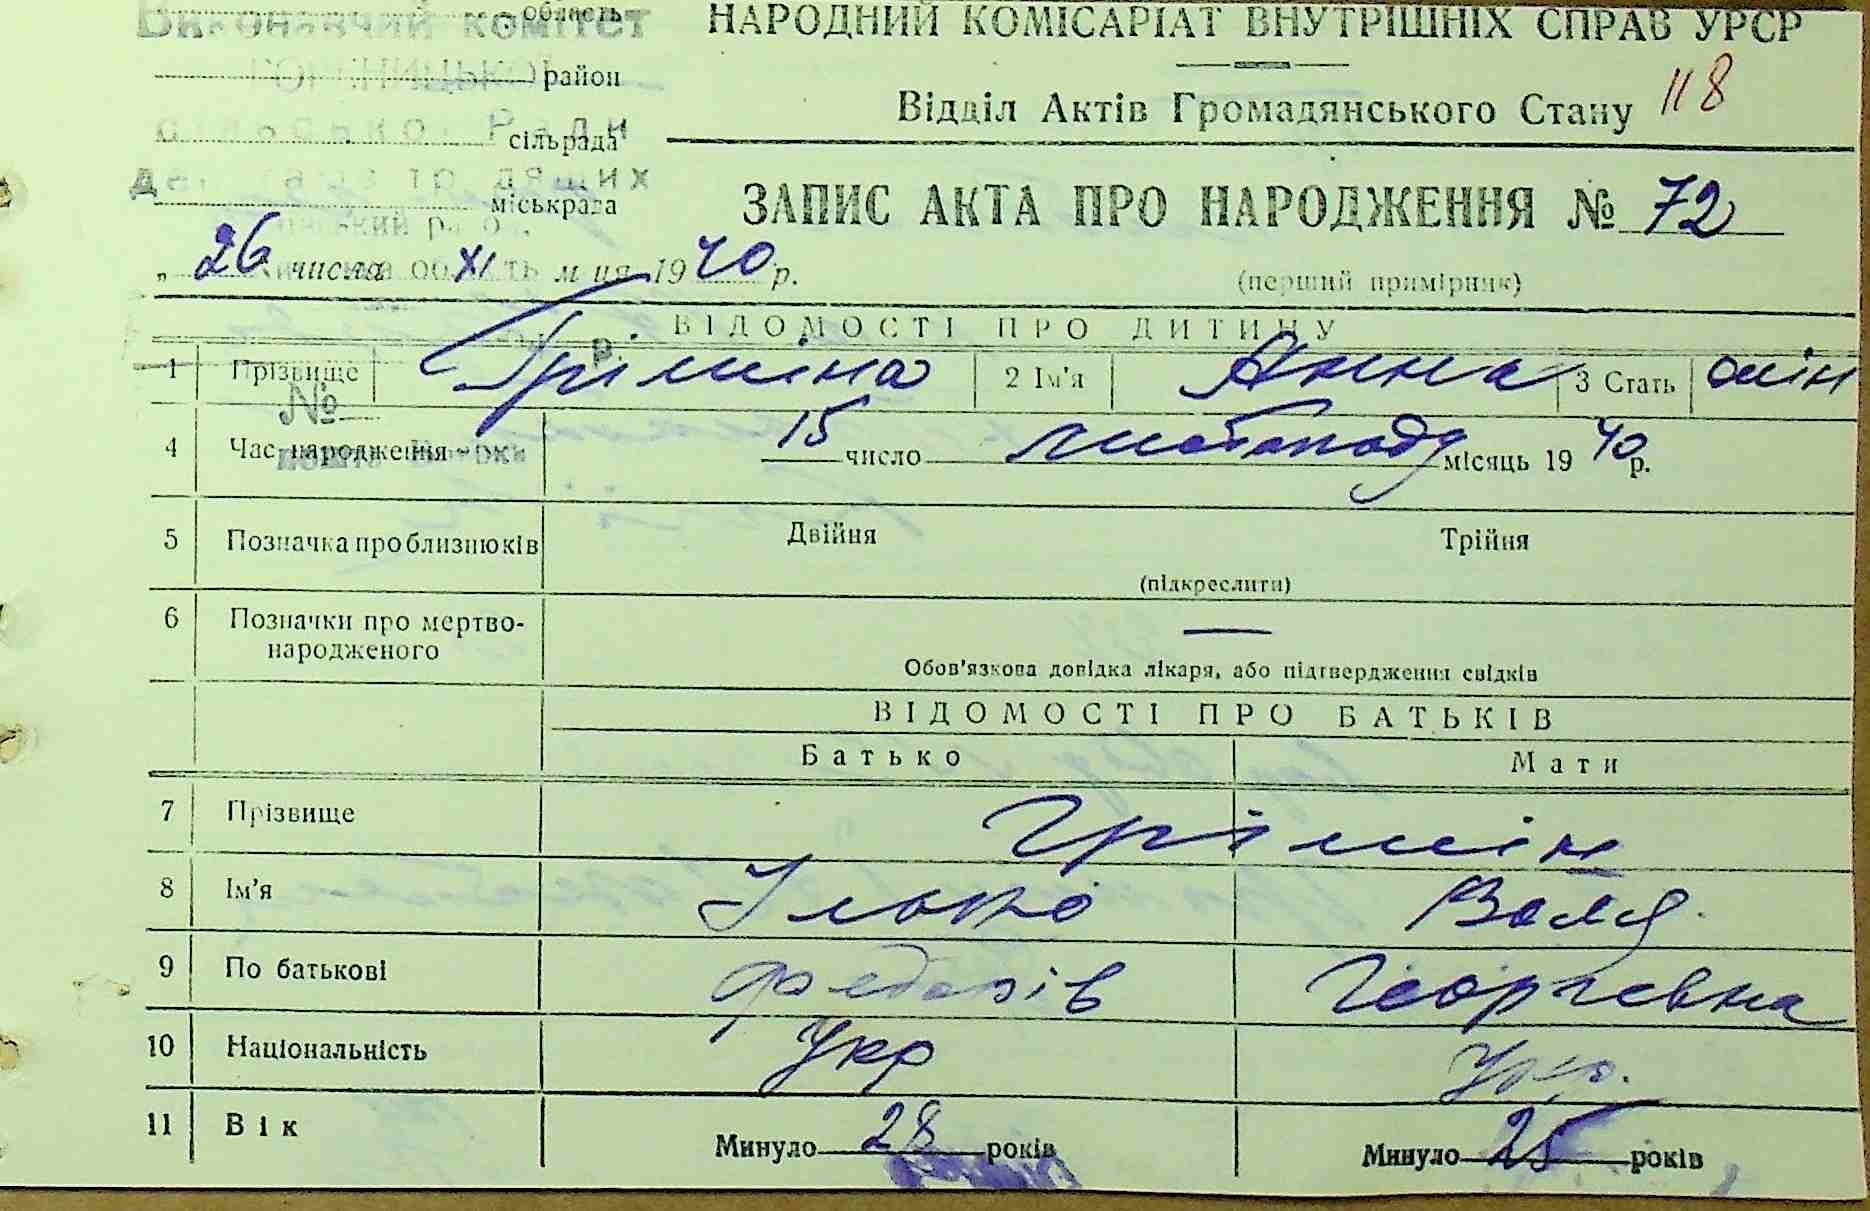 область
Виконавчий комітет
район
сільрада
міськрада
НАРОДНИЙ КОМІСАРІАТ ВНУТРІШНІХ СПРАВ УРСР
118
Відділ Актів Громадянського Стану
ЗАПИС АКТА ПРО НАРОДЖЕННЯ № 72
„ 26 числа XI м ця 1940 р.
(перший примірник)
ВІДОМОСТІ ПРО ДИТИНУ
1 Прізвище Грішіна 2 Ім'я Анна 3 Стать
№
4 Час народження 15 число листопаду місяць 1940 р.
5 Позначка про близнюків Двійня Трійня
(підкреслити)
6 Позначки про мертво-
народженого —
Обов'язкова довідка лікаря, або підтвердження свідків
ВІДОМОСТІ ПРО БАТЬКІВ
Батько Мати
7 Прізвище Грішін
8 Ім'я Ілько Валя
9 По батькові Федорів Георгевна
10 Національність Укр Укр.
11 Вік Минуло 28 років Минуло 25 років